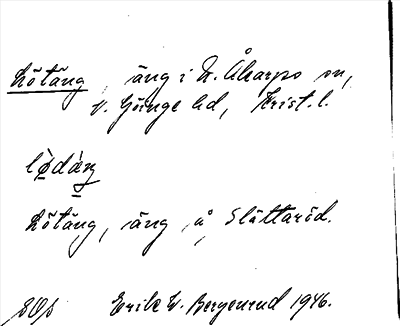 Lötäng, äng i N. Åkarps sn,
V. Göinge hd, Krist. l.
lø̀dàŋ
Lötäng, äng å Slättaröd.
Erik W. Bergenrud 1946.